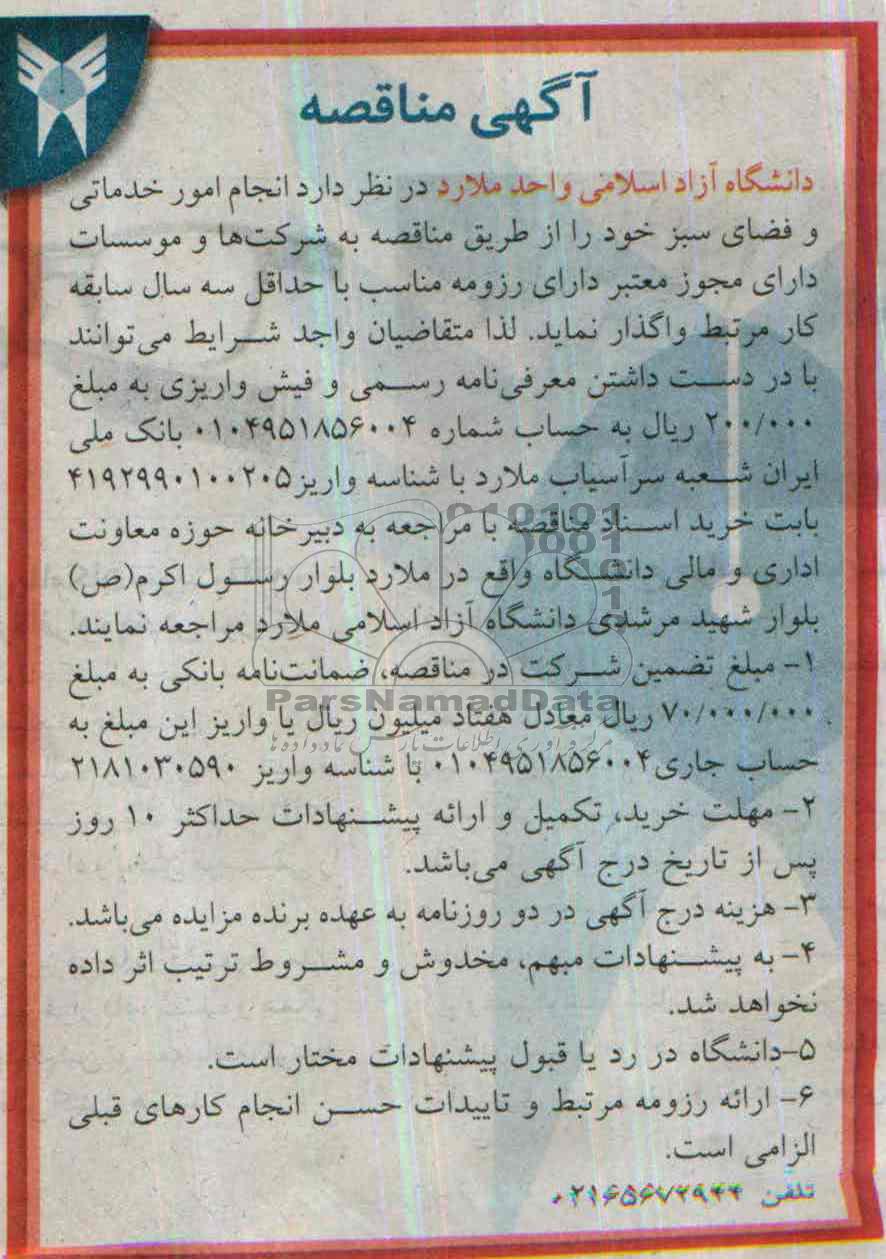 آگهی مناقصه
دانشگاه آزاد اسلامی واحد ملارد در نظر دارد انجام امور خدماتی
و فضای سبز خود را از طریق مناقصه به شرکت‌ها و موسسات
دارای مجوز معتبر دارای رزومه مناسب با حداقل سه سال سابقه
کار مرتبط واگذار نماید. لذا متقاضیان واجد شرایط می‌توانند
با در دست داشتن معرفی‌نامه رسمی و فیش واریزی به مبلغ
۲۰۰/۰۰۰ ریال به حساب شماره ۰۱۰۴۹۵۱۸۵۶۰۰۴ بانک ملی
ایران شعبه سرآسیاب ملارد با شناسه واریز ۴۱۹۲۹۹۰۱۰۰۲۰۵
بابت خرید اسناد مناقصه با مراجعه به دبیرخانه حوزه معاونت
اداری و مالی دانشگاه واقع در ملارد بلوار رسول اکرم(ص)
بلوار شهید مرشدی دانشگاه آزاد اسلامی ملارد مراجعه نمایند.
۱- مبلغ تضمین شرکت در مناقصه، ضمانت‌نامه بانکی به مبلغ
ParsNamadData
۷۰/۰۰۰/۰۰۰ ریال معادل هفتاد میلیون ریال یا واریز این مبلغ به
حساب جاری ۰۱۰۴۹۵۱۸۵۶۰۰۴ با شناسه واریز ۲۱۸۱۰۳۰۵۹۰
۲- مهلت خرید، تکمیل و ارائه پیشنهادات حداکثر ۱۰ روز
پس از تاریخ درج آگهی می‌باشد.
۳- هزینه درج آگهی در دو روزنامه به عهده برنده مزایده می‌باشد.
۴- به پیشنهادات مبهم، مخدوش و مشروط ترتیب اثر داده
نخواهد شد.
۵-دانشگاه در رد یا قبول پیشنهادات مختار است.
۶- ارائه رزومه مرتبط و تاییدات حسن انجام کارهای قبلی
الزامی است.
تلفن ۰۲۱۶۵۶۷۲۹۴۴